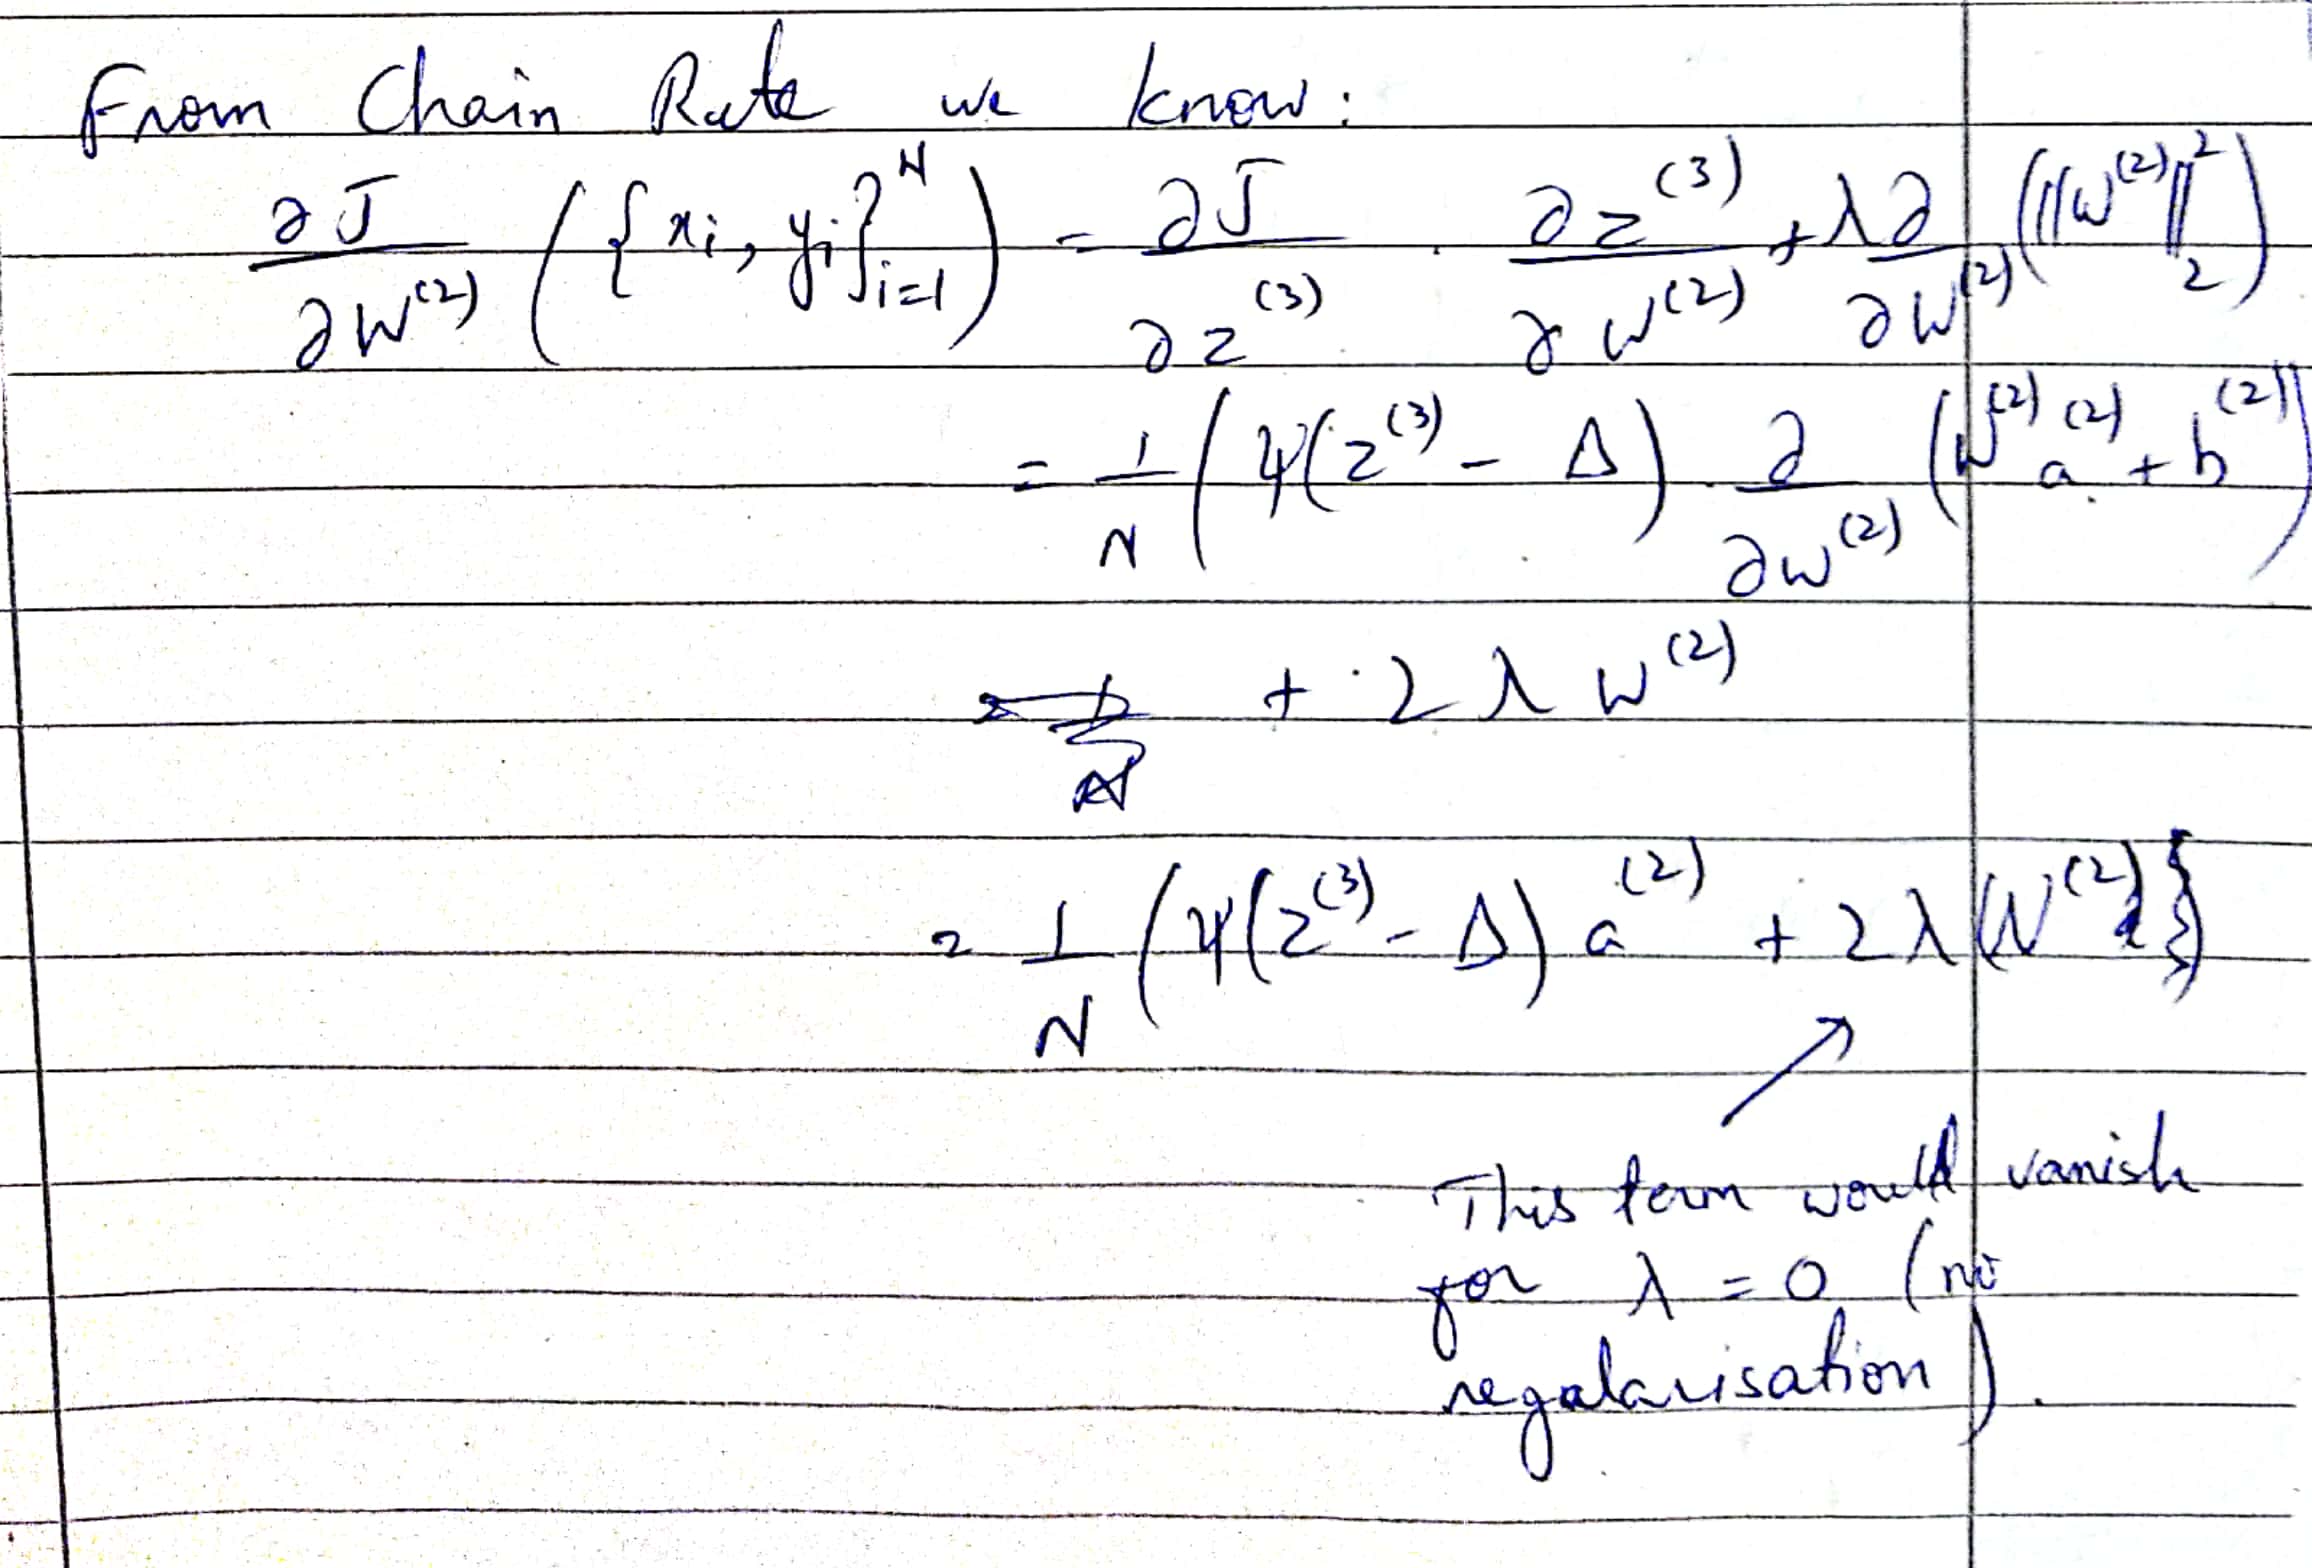 From Chain Rule we know:
∂J/∂W^(2) ({x_i, y_i}_{i=1}^N) = ∂J/∂z^(3) · ∂z^(3)/∂W^(2) + λ∂/∂W^(2) (||W^(2)||_2^2)
= 1/N (ψ(z^(3) - Δ) · ∂/∂W^(2) (W^(2) a^(2) + b^(2))
+ 2 λ W^(2)
= 1/N (ψ(z^(3) - Δ) a^(2) + 2 λ W^(2)
This term would vanish
for λ = 0 (no
regularisation).